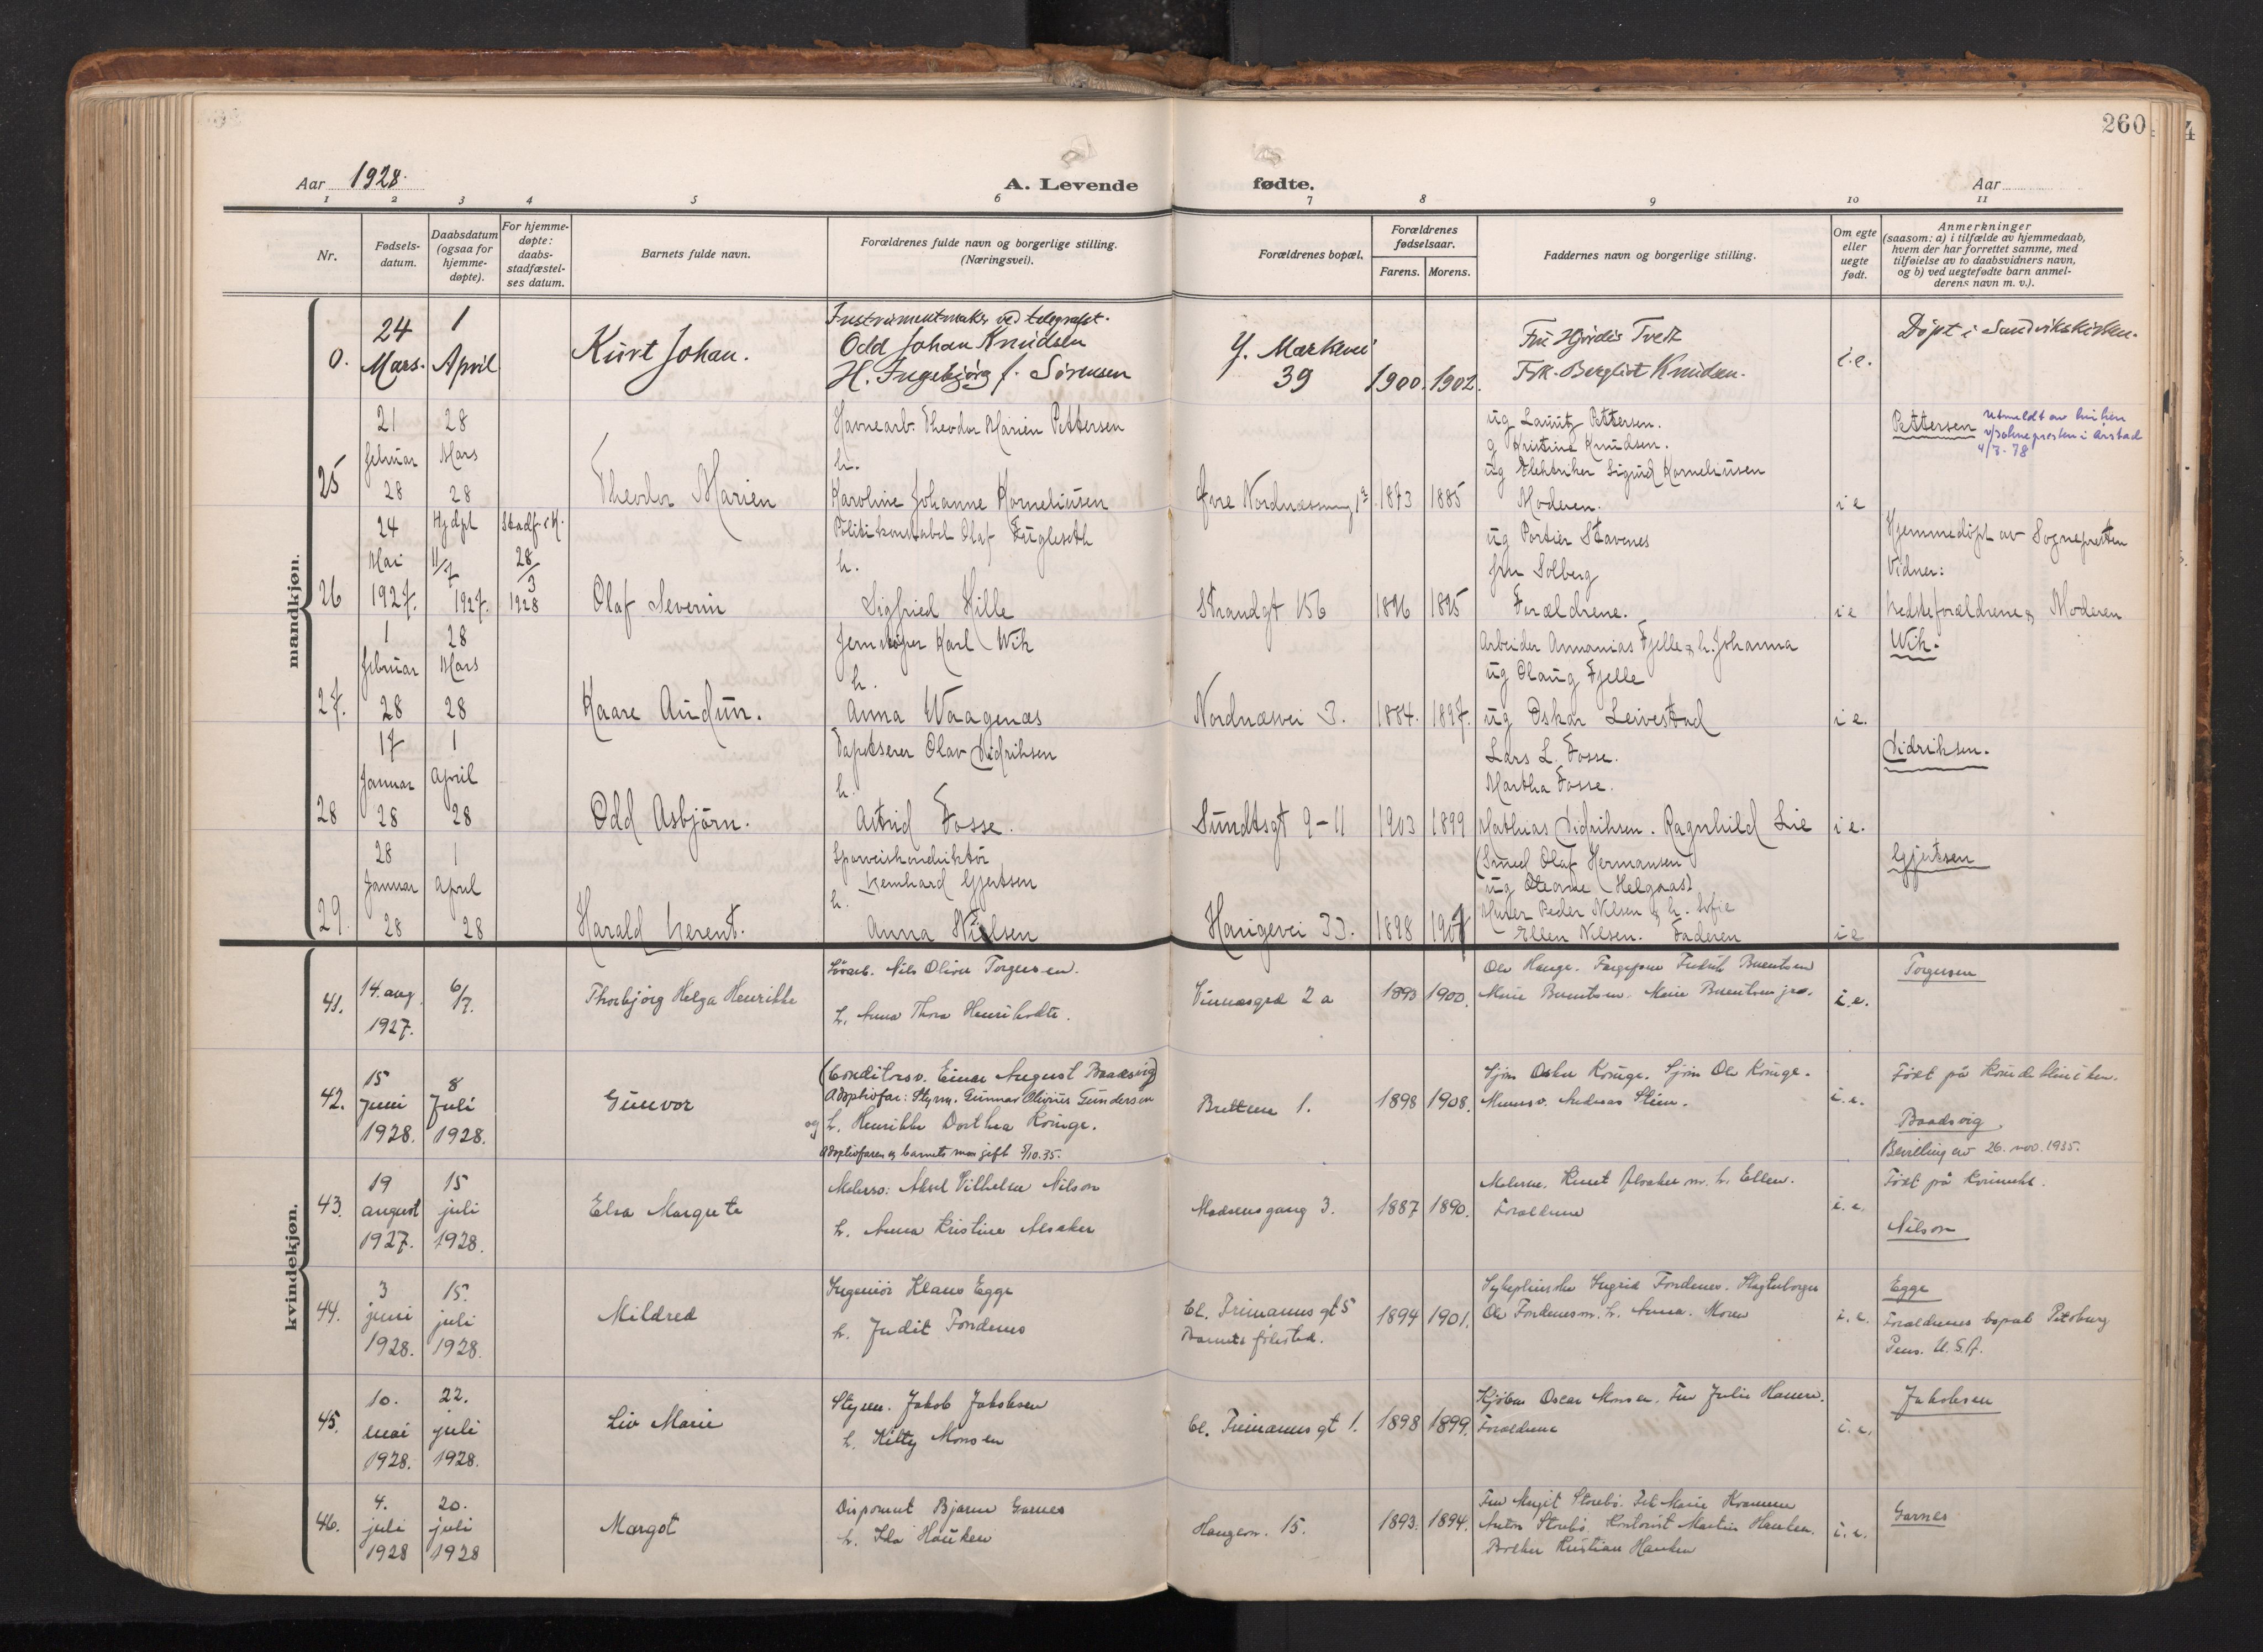 260
4
Aar 1928.
A. Levende fødte.
Aar
1 2 3 4 5 6 7 8 9 10 11
Nr.
Fødsels-
datum.
Daabsdatum
(ogsaa for
hjemme-
døpte).
For hjemme-
døpte:
daabs-
stadfæstel-
ses datum.
Barnets fulde navn.
Forældrenes fulde navn og borgerlige stilling.
(Næringsvei).
Forældrenes bopæl.
Forældrenes
fødselsaar.
Farens. Morens.
Faddernes navn og borgerlige stilling.
Om egte
eller
uegte
født.
Anmerkninger
(saasom: a) i tilfælde av hjemmedaab,
hvem der har forrettet samme, med
tilføielse av to daabsvidners navn,
og b) ved uegtefødte barn anmel-
derens navn m. v.).
mandkjøn.
0.
24
Mars.
1
April
Kurt Johan.
Instrumentmaker ved telegrafet.
Odd Johan Knudsen
H. Ingebjørg f. Sørensen
Y. Markevei
39
1900. 1902.
Fru Hjørdis Tvedt
Frk. Bergliot Knudsen.
i.e.
Døpt i Sandvikskirken.
25
21
februar
28
28
Mars
28
Theodor Marien
Havnearb. Theodor Marien Pettersen
h.
Karoline Johanne Korneliusen
Øvre Nordnæssmug
1873 1885
ug Lauritz Pettersen.
g Kristine Knudsen.
ug Elektriker Sigurd Korneliusen
Moderen.
i e
Pettersen
Utmeldt av
v/soknepresten i Årstad
26
24
Mai
1927.
Hjdpt
11/7
1927.
Stadf. i K.
28/3
1928
Olaf Severin
Politikonstabel Olaf Fugleseth
h.
Sigfried Hille
Strandgt 156
1896 1895
ug Portier Stavenes
fru Solberg
Forældrene.
i e
Hjemmedøpt av Sognepresten
Vidner:
Bedsteforældrene & Moderen
27.
1
februar
28
28
Mars
28
Kaare Audun.
Jernstøper Karl Wik
h.
Anna Waagenæs
Nordnæsvei 3.
1884. 1897.
Arbeider Annanias Fjelle & h. Johanna
ug Olaug Fjelle
ug Oskar Leivestad
i e.
Wik.
28
17
Januar
28
1
April
28
Odd Asbjørn.
Tapetserer Olav Didriksen
h.
Astrid Fosse.
Sundtsgt 9-11
1903 1899
Lars L. Fosse.
Martha Fosse.
Mathias Didriksen. Ragnhild Lie
i e.
Didriksen.
29.
28
Januar
28
1
April
28
Harald Berent.
Sporveiskonduktør
Bernhard Gjertsen
h.
Anna Nielsen
Haugevei 33.
1898 1907
(Smed Olaf Hermansen
ug Oteorne Helgaas)
Murer Peder Nilsen & h. Sofie
Ellen Nilsen. Faderen
i e
Gjertsen
kvindekjøn.
41.
14. aug.
1927.
6/7.
Thorbjørg Helga Henrikke
Nils Oliver Torgersen.
h. Anna Thora
2 a
1893 1900.
Ole Hauge. Fredrik Berentsen
Marie Berentsen. Marie Berentsen
i.e.
Torgersen
42.
15
Juni
1928.
8
Juli
1928.
Gunvor
(Conditorsv. Einar August Baadsvig)
Adoptivfar: Styrm. Gunnar Olinius Gundersen
og h. Henrikke Dorthea Kønige.
Adoptivfaren og barnets mor gift 5/10.35.
1.
1898 1908.
Sjøm Oskar Kønige. Sjøm Ole Kønige.
Andreas
i.e.
Født på Kvindeklinikken.
Baadsvig.
Bevilling av 26. nov. 1935.
43.
19
august
1927.
15
juli
1928.
Elsa Margrete
Axel Vilhelm Nilson
h. Anna Kristine Alsaker
Madsensgang 3.
1887 1890.
Knut Alsaker m. h. Ellen.
Forældrene
i.e.
Født på
Nilson
44.
3
juni
1928.
15.
juli
1928.
Mildred
Ingeniør Klaus Egge
h. Judit Fondenes
Cl. Frimannsgt 5
Barnets fødested.
1894 1901.
Sykepleierske Ingrid Fondenes.
Ole Fondenes m. h. Anna. Moren
i.e.
Egge
Forældrenes bopæl Pitsburg
Pens. U.S.A.
45.
10.
mai
1928.
22.
juli
1928.
Liv Marie
Styrm. Jakob Jakobsen
h. Kitty Monsen
Cl. Frimannsgt 1.
1898 1899.
Kjøbm Oscar Monsen. Fru Julie
Forældrene
i.e.
Jakobsen
46.
4.
juli
1928
20.
juli
1928
Margot
Disponent Bjarne Garnes
h. Ida Hauken
15.
1893. 1894.
Fru Margit Storebø. Marie
Anton Storebø. Kontorist Martin Hauken.
Kristian Hauken
i.e.
Garnes